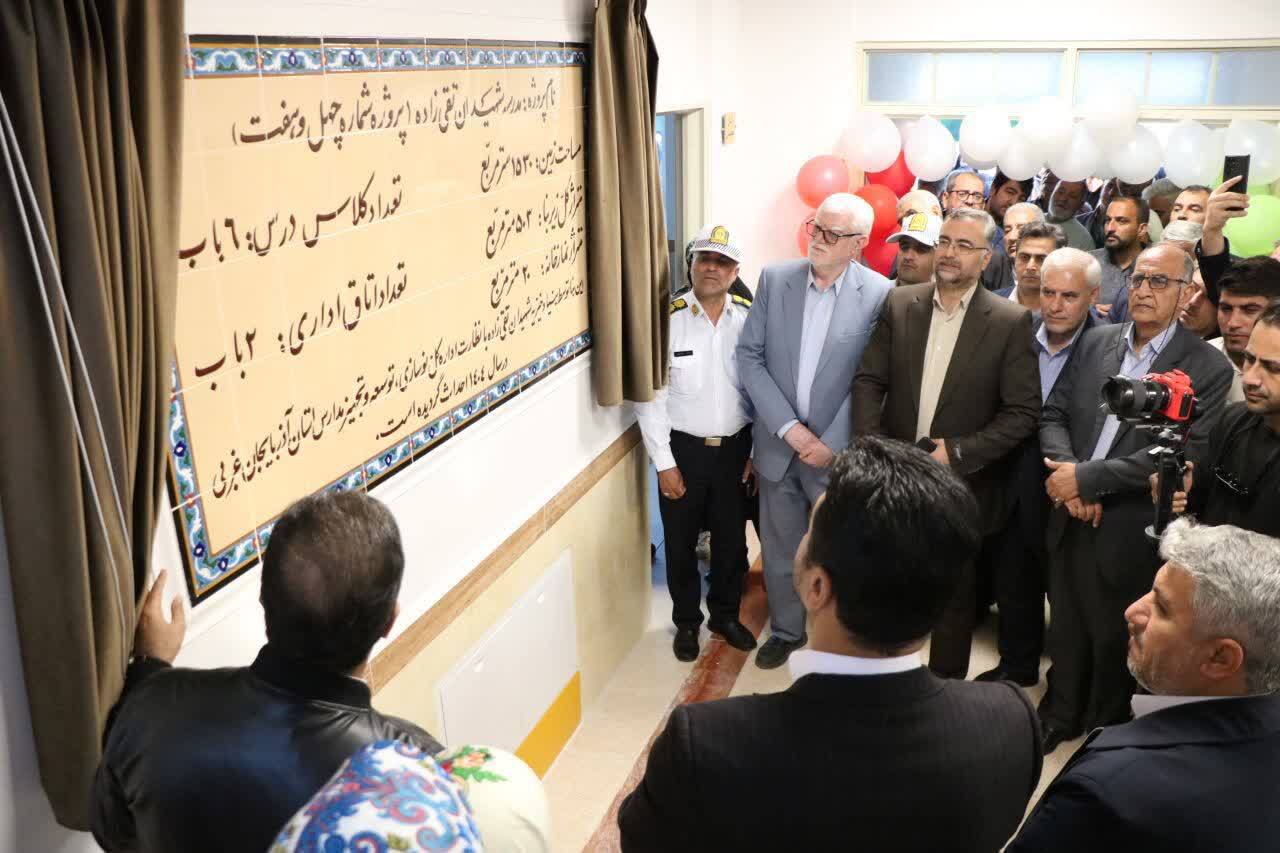 نام پروژه: مدرسه شهیدان تقی زاده (پروژه شماره چهل و هفت)
مساحت زمین: ۱۵۳۰ متر مربع
تعداد کلاس درس: ۶ باب
متراژ کل زیربنا: ۵۰۳ متر مربع
متراژ نمازخانه: ۲۰ متر مربع
تعداد اتاق اداری: ۲ باب
این بنا توسط بنیاد خیریه شهیدان تقی زاده با نظارت اداره کل نوسازی، توسعه و تجهیز مدارس استان آذربایجان غربی
در سال ۱۴۰۴ احداث گردیده است.